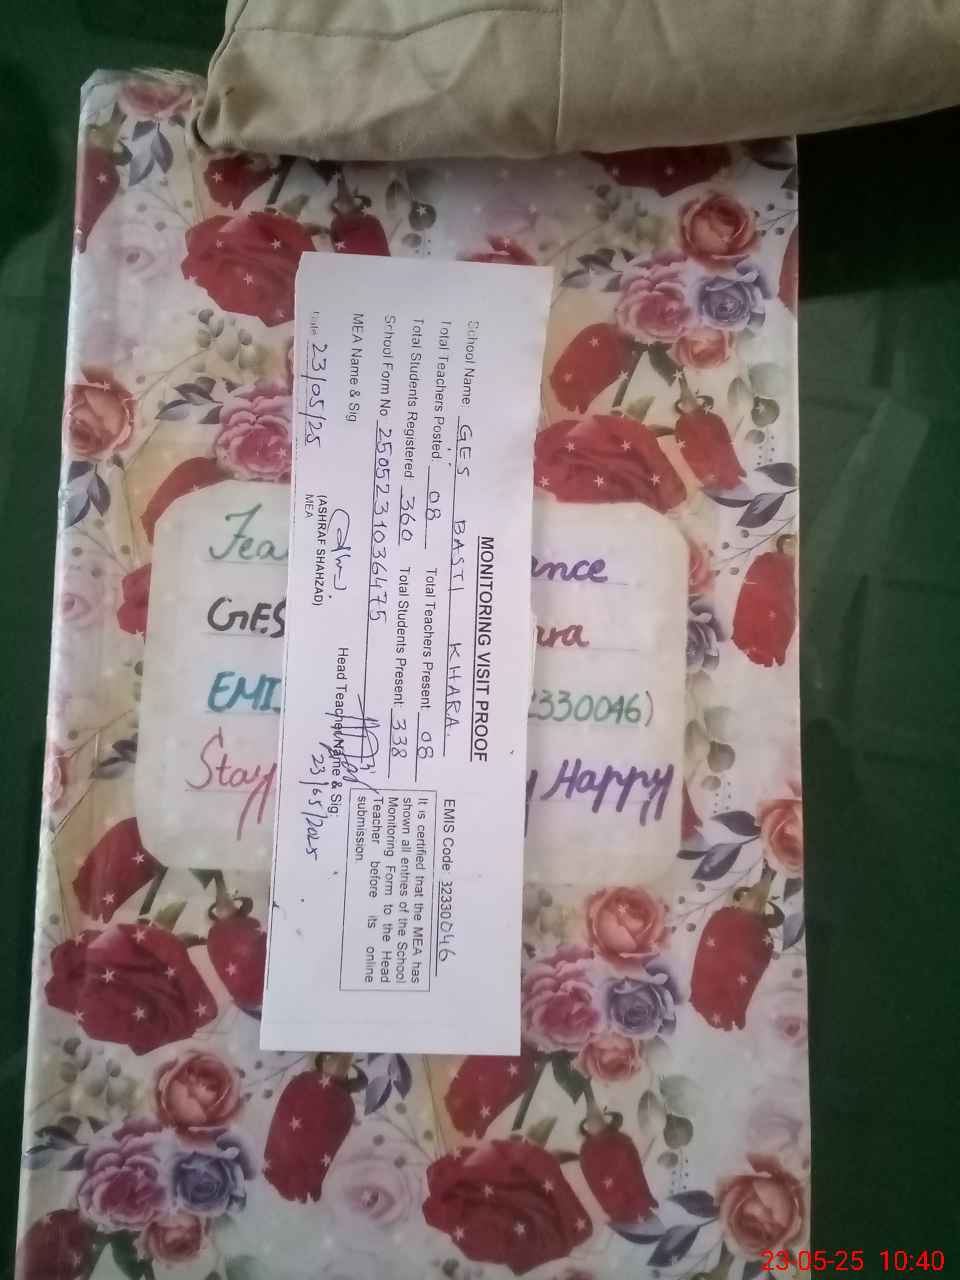 MONITORING VISIT PROOF
School Name: G.E.S BASTI KHARA. EMIS Code: 32330046
Total Teachers Posted: 08 Total Teachers Present: 08
Total Students Registered: 360 Total Students Present: 338
School Form No 2505231036475
MEA Name & Sig Head Teacher Name & Sig:
(ASHRAF SHAHZAD)
MEA
Date 23/05/25 23/05/2025
It is certified that the MEA has
shown all entries of the School
Monitoring Form to the Head
Teacher before its online
submission.
Tea ance
G.E.S ara
EMI 2330046)
Stay y Happy
23-05-25 10:40